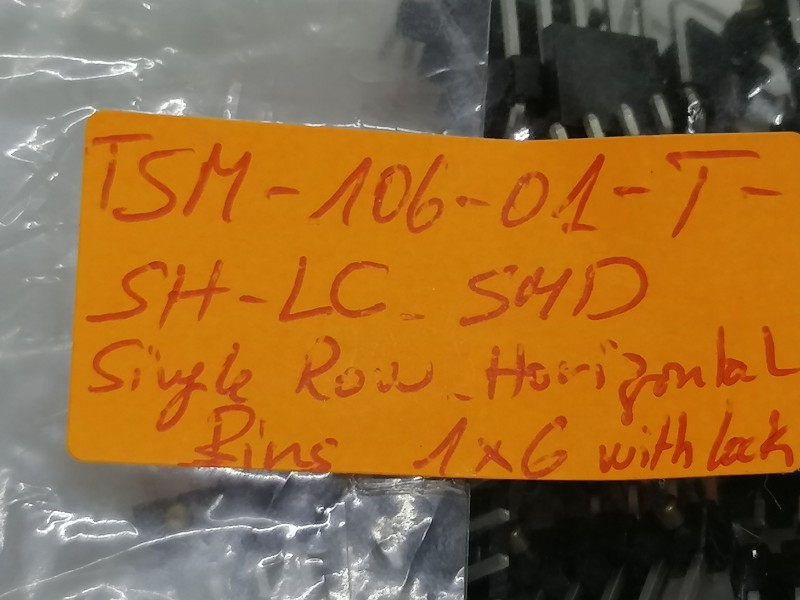 TSM-106-01-T-
SH-LC_SMD
Single Row_Horizontal
Pins 1x6 with lock